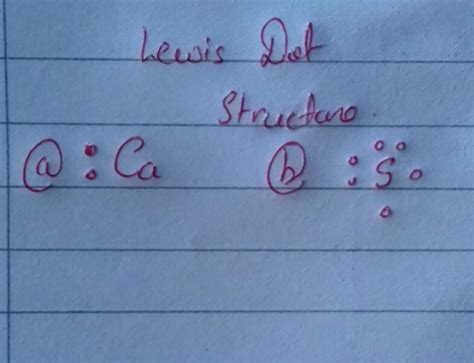 Lewis Dot
Structure.
ⓐ :Ca ⓑ :S̤̈·